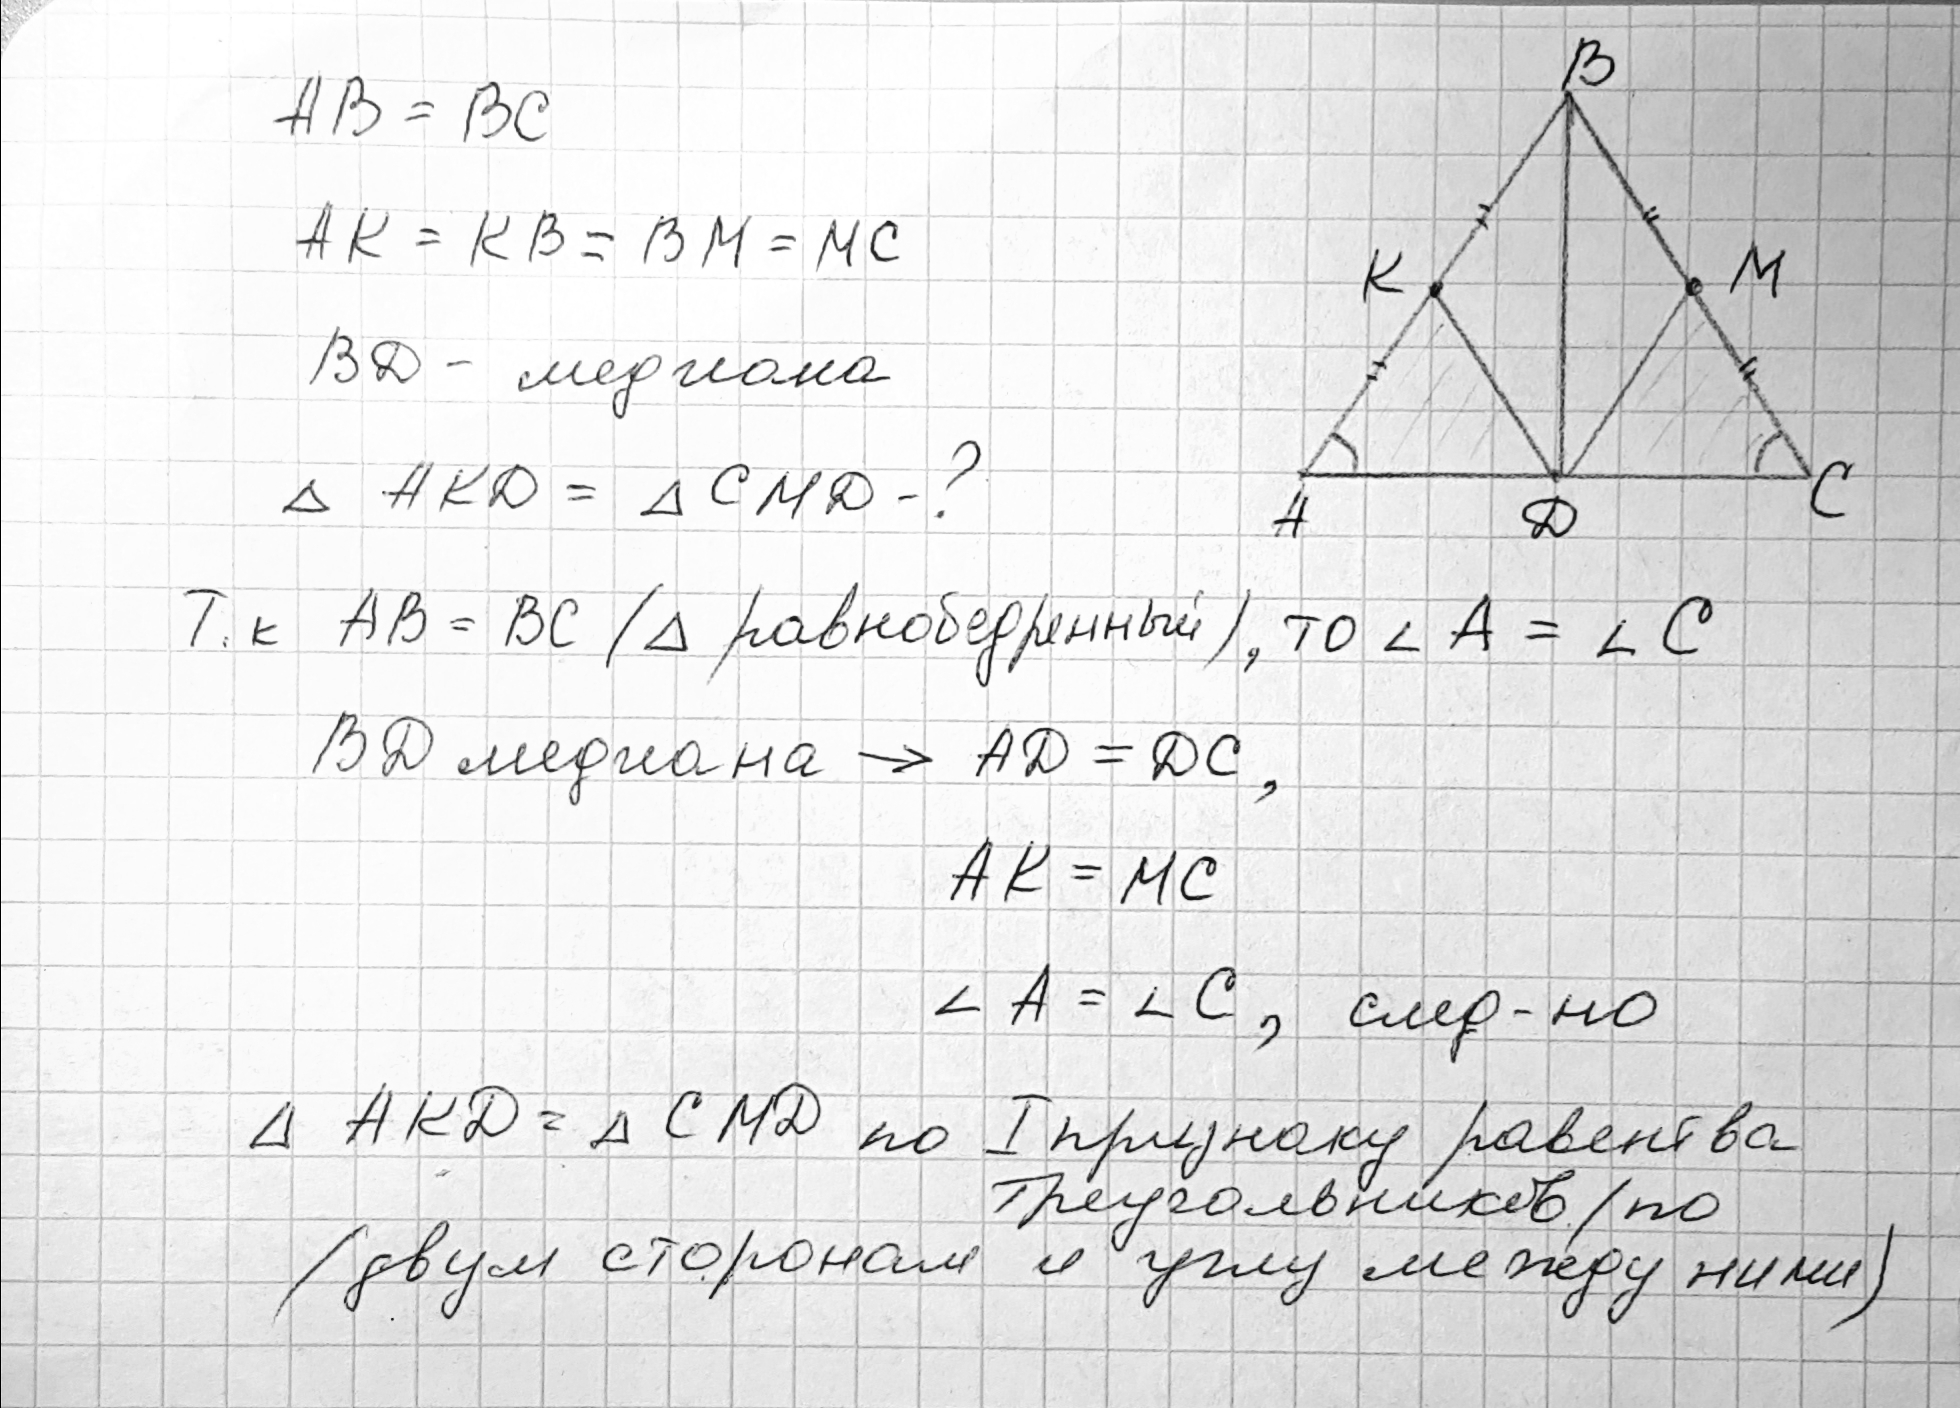 AB = BC
AK = KB = BM = MC
BD - медиана
△ AKD = △ CMD - ?
Т.к AB = BC (△ равнобедренный), то ∠ A = ∠ C
BD медиана → AD = DC,
AK = MC
∠ A = ∠ C, след-но
△ AKD = △ CMD по I признаку равенства
треугольников (по
(двум сторонам и углу между ними)
B
K
M
A
D
C